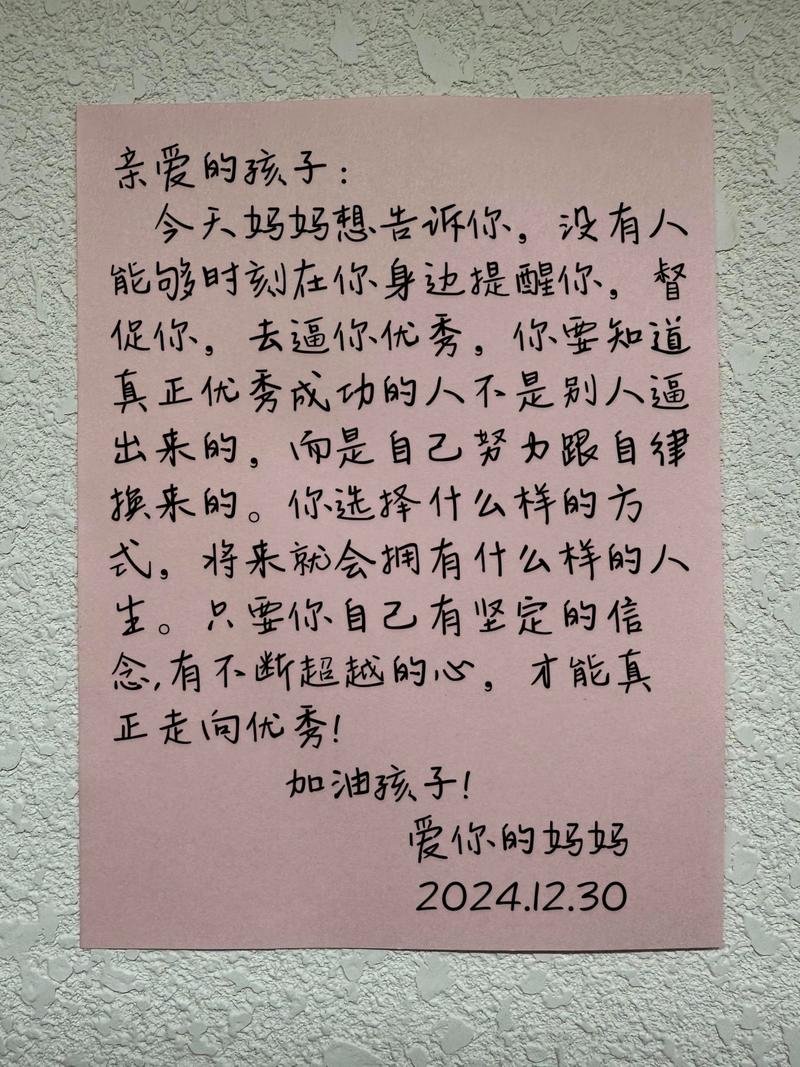 亲爱的孩子：
今天妈妈想告诉你，没有人
能够时刻在你身边提醒你，督
促你，去逼你优秀，你要知道
真正优秀成功的人不是别人逼
出来的，而是自己努力跟自律
换来的。你选择什么样的方
式，将来就会拥有什么样的人
生。只要你自己有坚定的信
念，有不断超越的心，才能真
正走向优秀！
加油孩子！
爱你的妈妈
2024.12.30